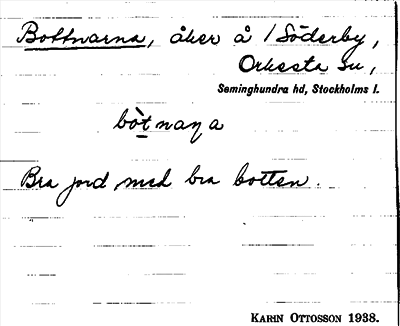 Bottnarna, åker å 1 Söderby,
Orkesta sn,
Seminghundra hd, Stockholms l.
bòtnaṇa
Bra jord med bra botten.
KARIN OTTOSSON 1938.